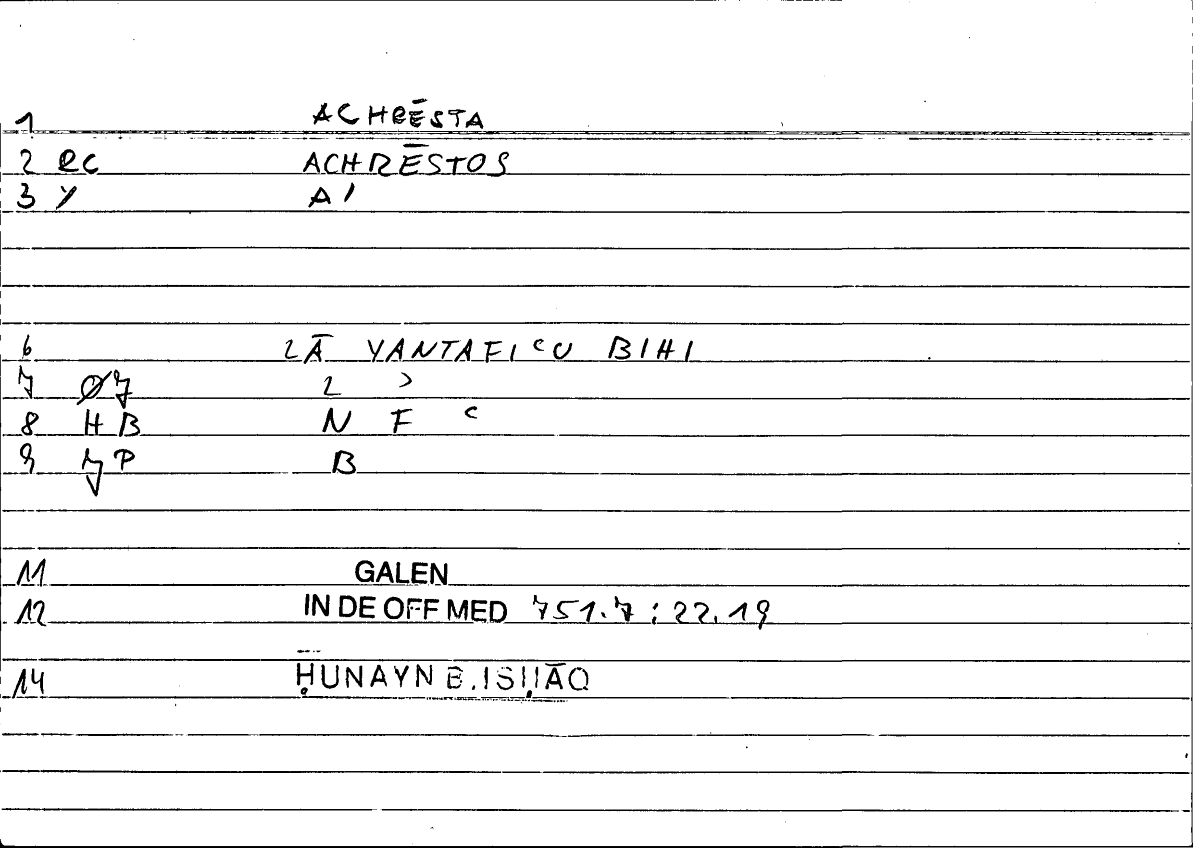 1 ACHRĒSTA
2 RC ACHRĒSTOS
3 Y A1
6 LĀ YANTAFIcU BIHI
7 Ø7 L ʾ
8 HB N F c
9 7P B
11 GALEN
12 IN DE OFF MED 751.7 : 22.19
14 ḤUNAYN B. ISḤĀQ